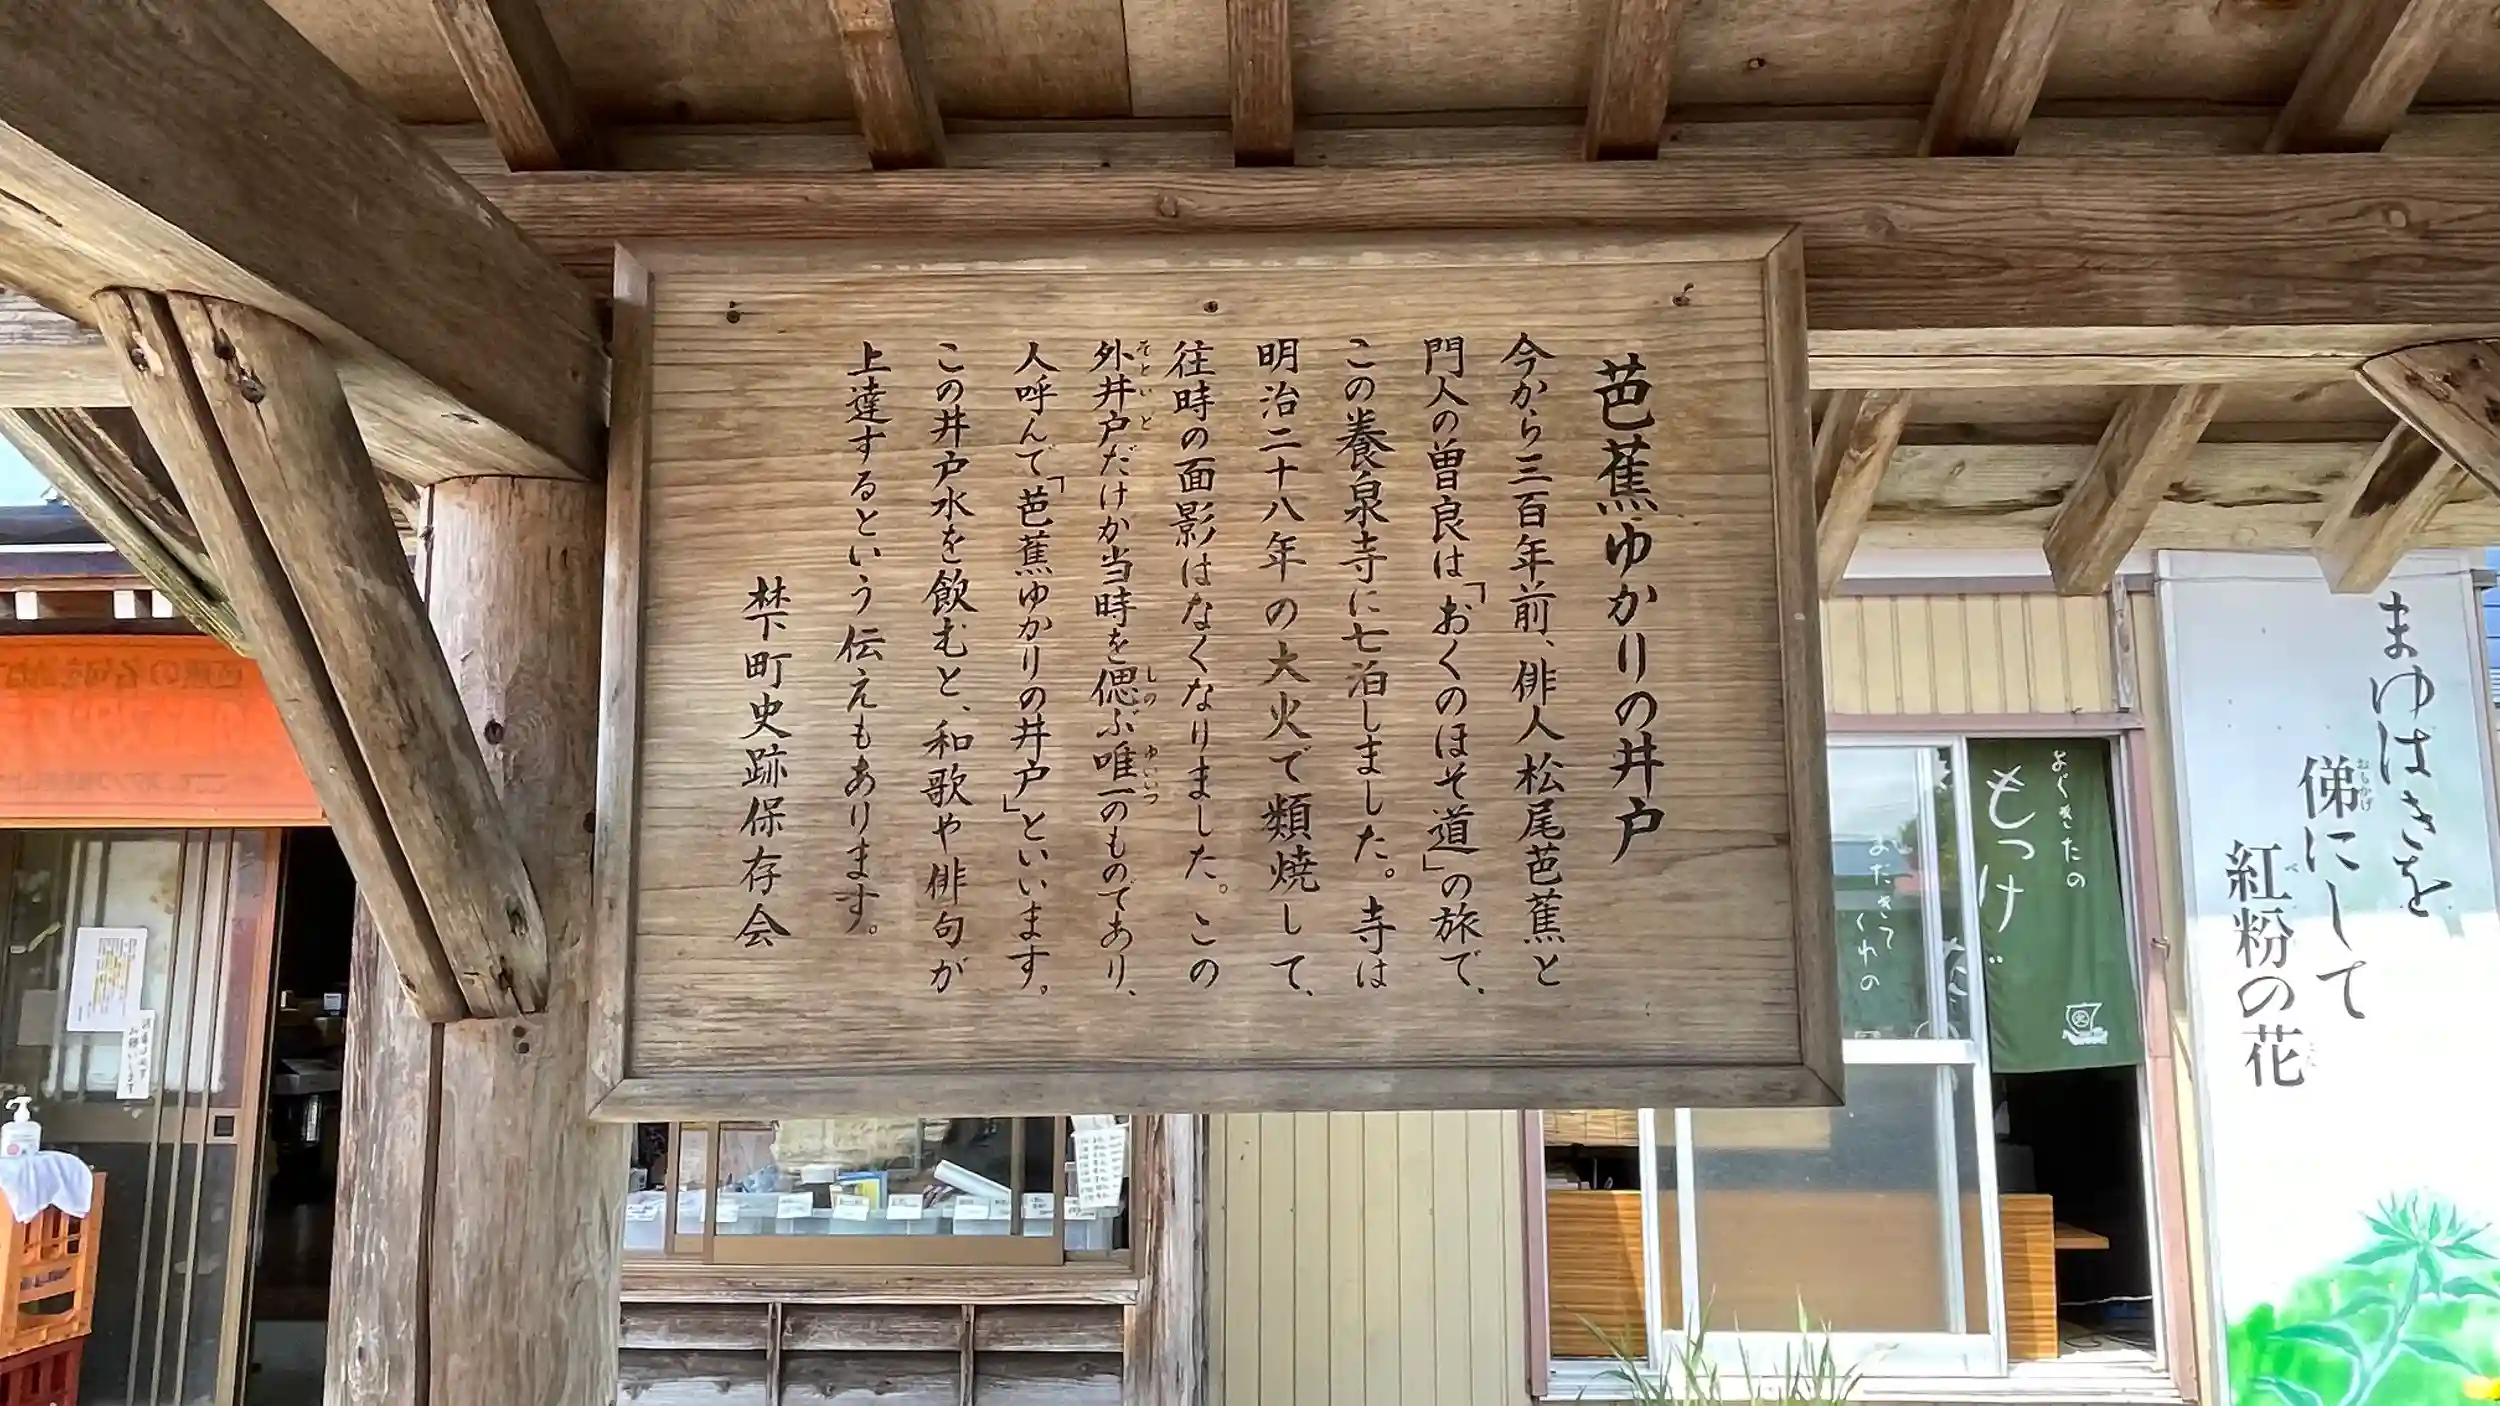 芭蕉ゆかりの井戸
今から三百年前、俳人松尾芭蕉と
門人の曽良は「おくのほそ道」の旅で、
この養泉寺に七泊しました。寺は
明治二十八年の大火で類焼して、
往時の面影はなくなりました。この
外井戸だけか当時を偲ぶ唯一のものであり、
そといど
しの
ゆいいつ
人呼んで「芭蕉ゆかりの井戸」といいます。
この井戸水を飲むと、和歌や俳句が
上達するという伝えもあります。
梺町史跡保存会
まゆはきを
俤にして
おもかげ
紅粉の花
べ
よぐきたの
もっけだ
またきて
くれの